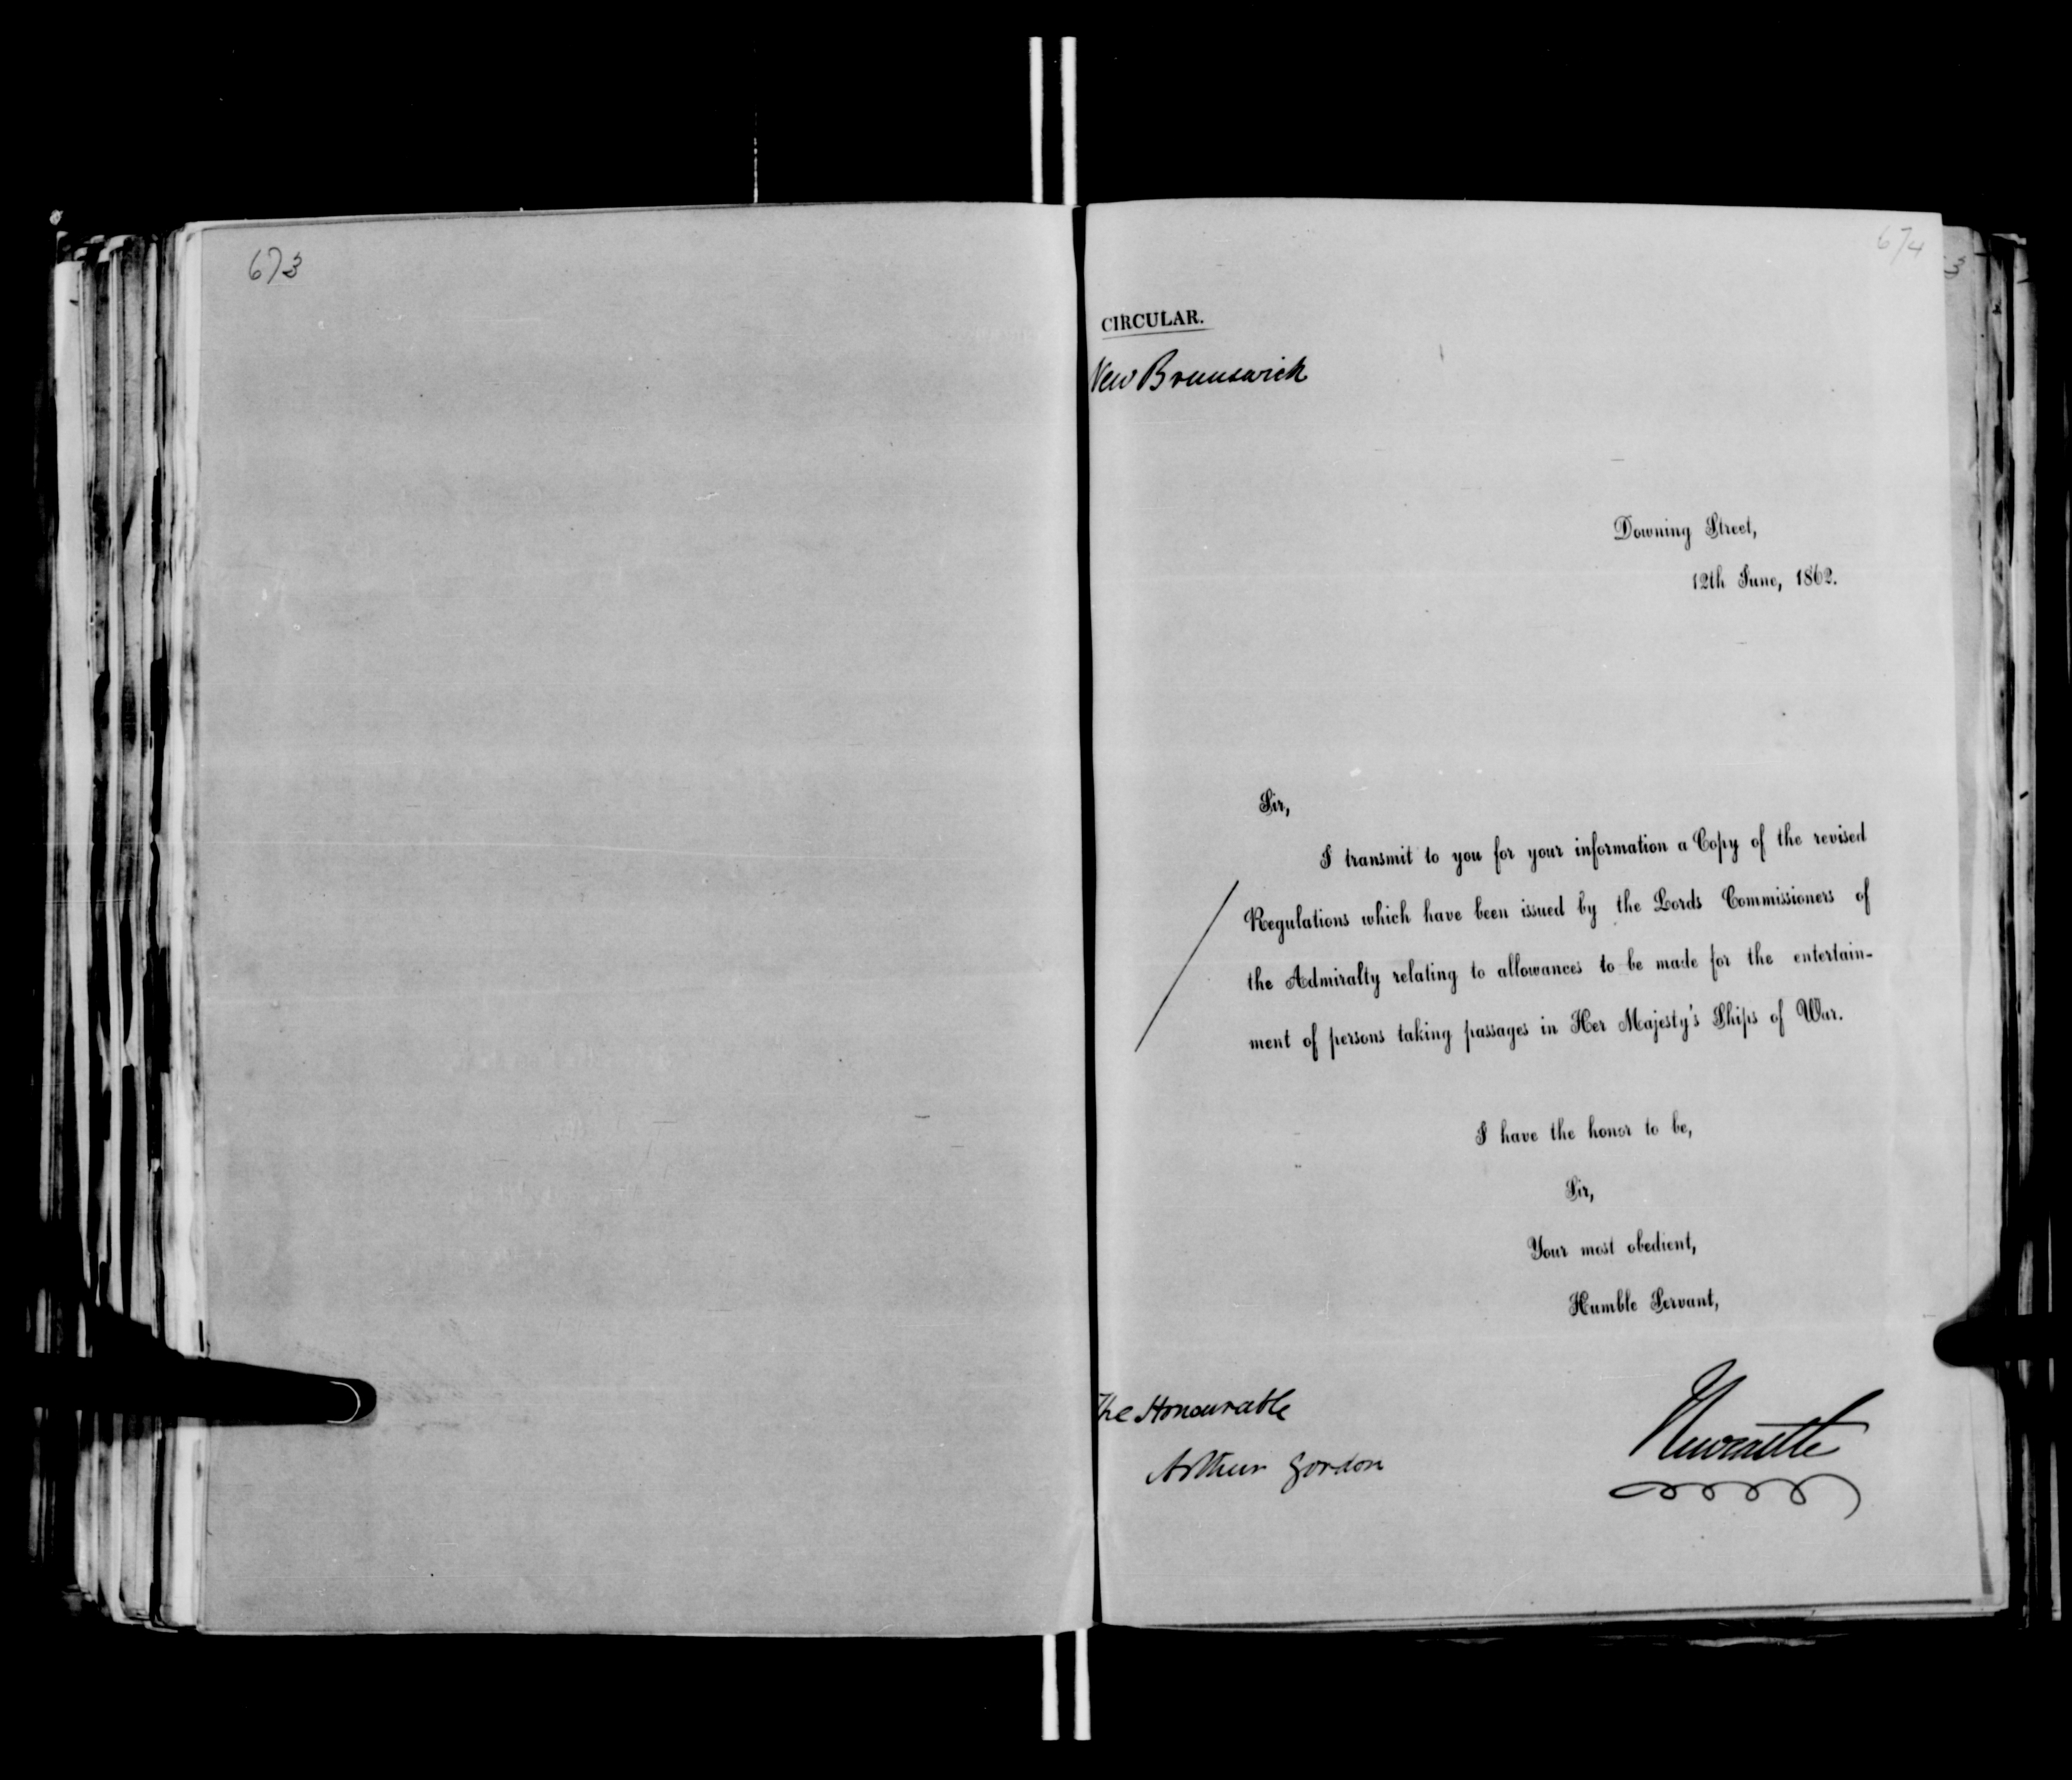 673
674
CIRCULAR.
New Brunswick
Downing Street,
12th June, 1862.
Sir,
I transmit to you for your information a Copy of the revised
Regulations which have been issued by the Lords Commissioners of
the Admiralty relating to allowances to be made for the entertain-
ment of persons taking passages in Her Majesty's Ships of War.
I have the honor to be,
Sir,
Your most obedient,
Humble Servant,
The Honourable
Arthur Gordon
Newcastle